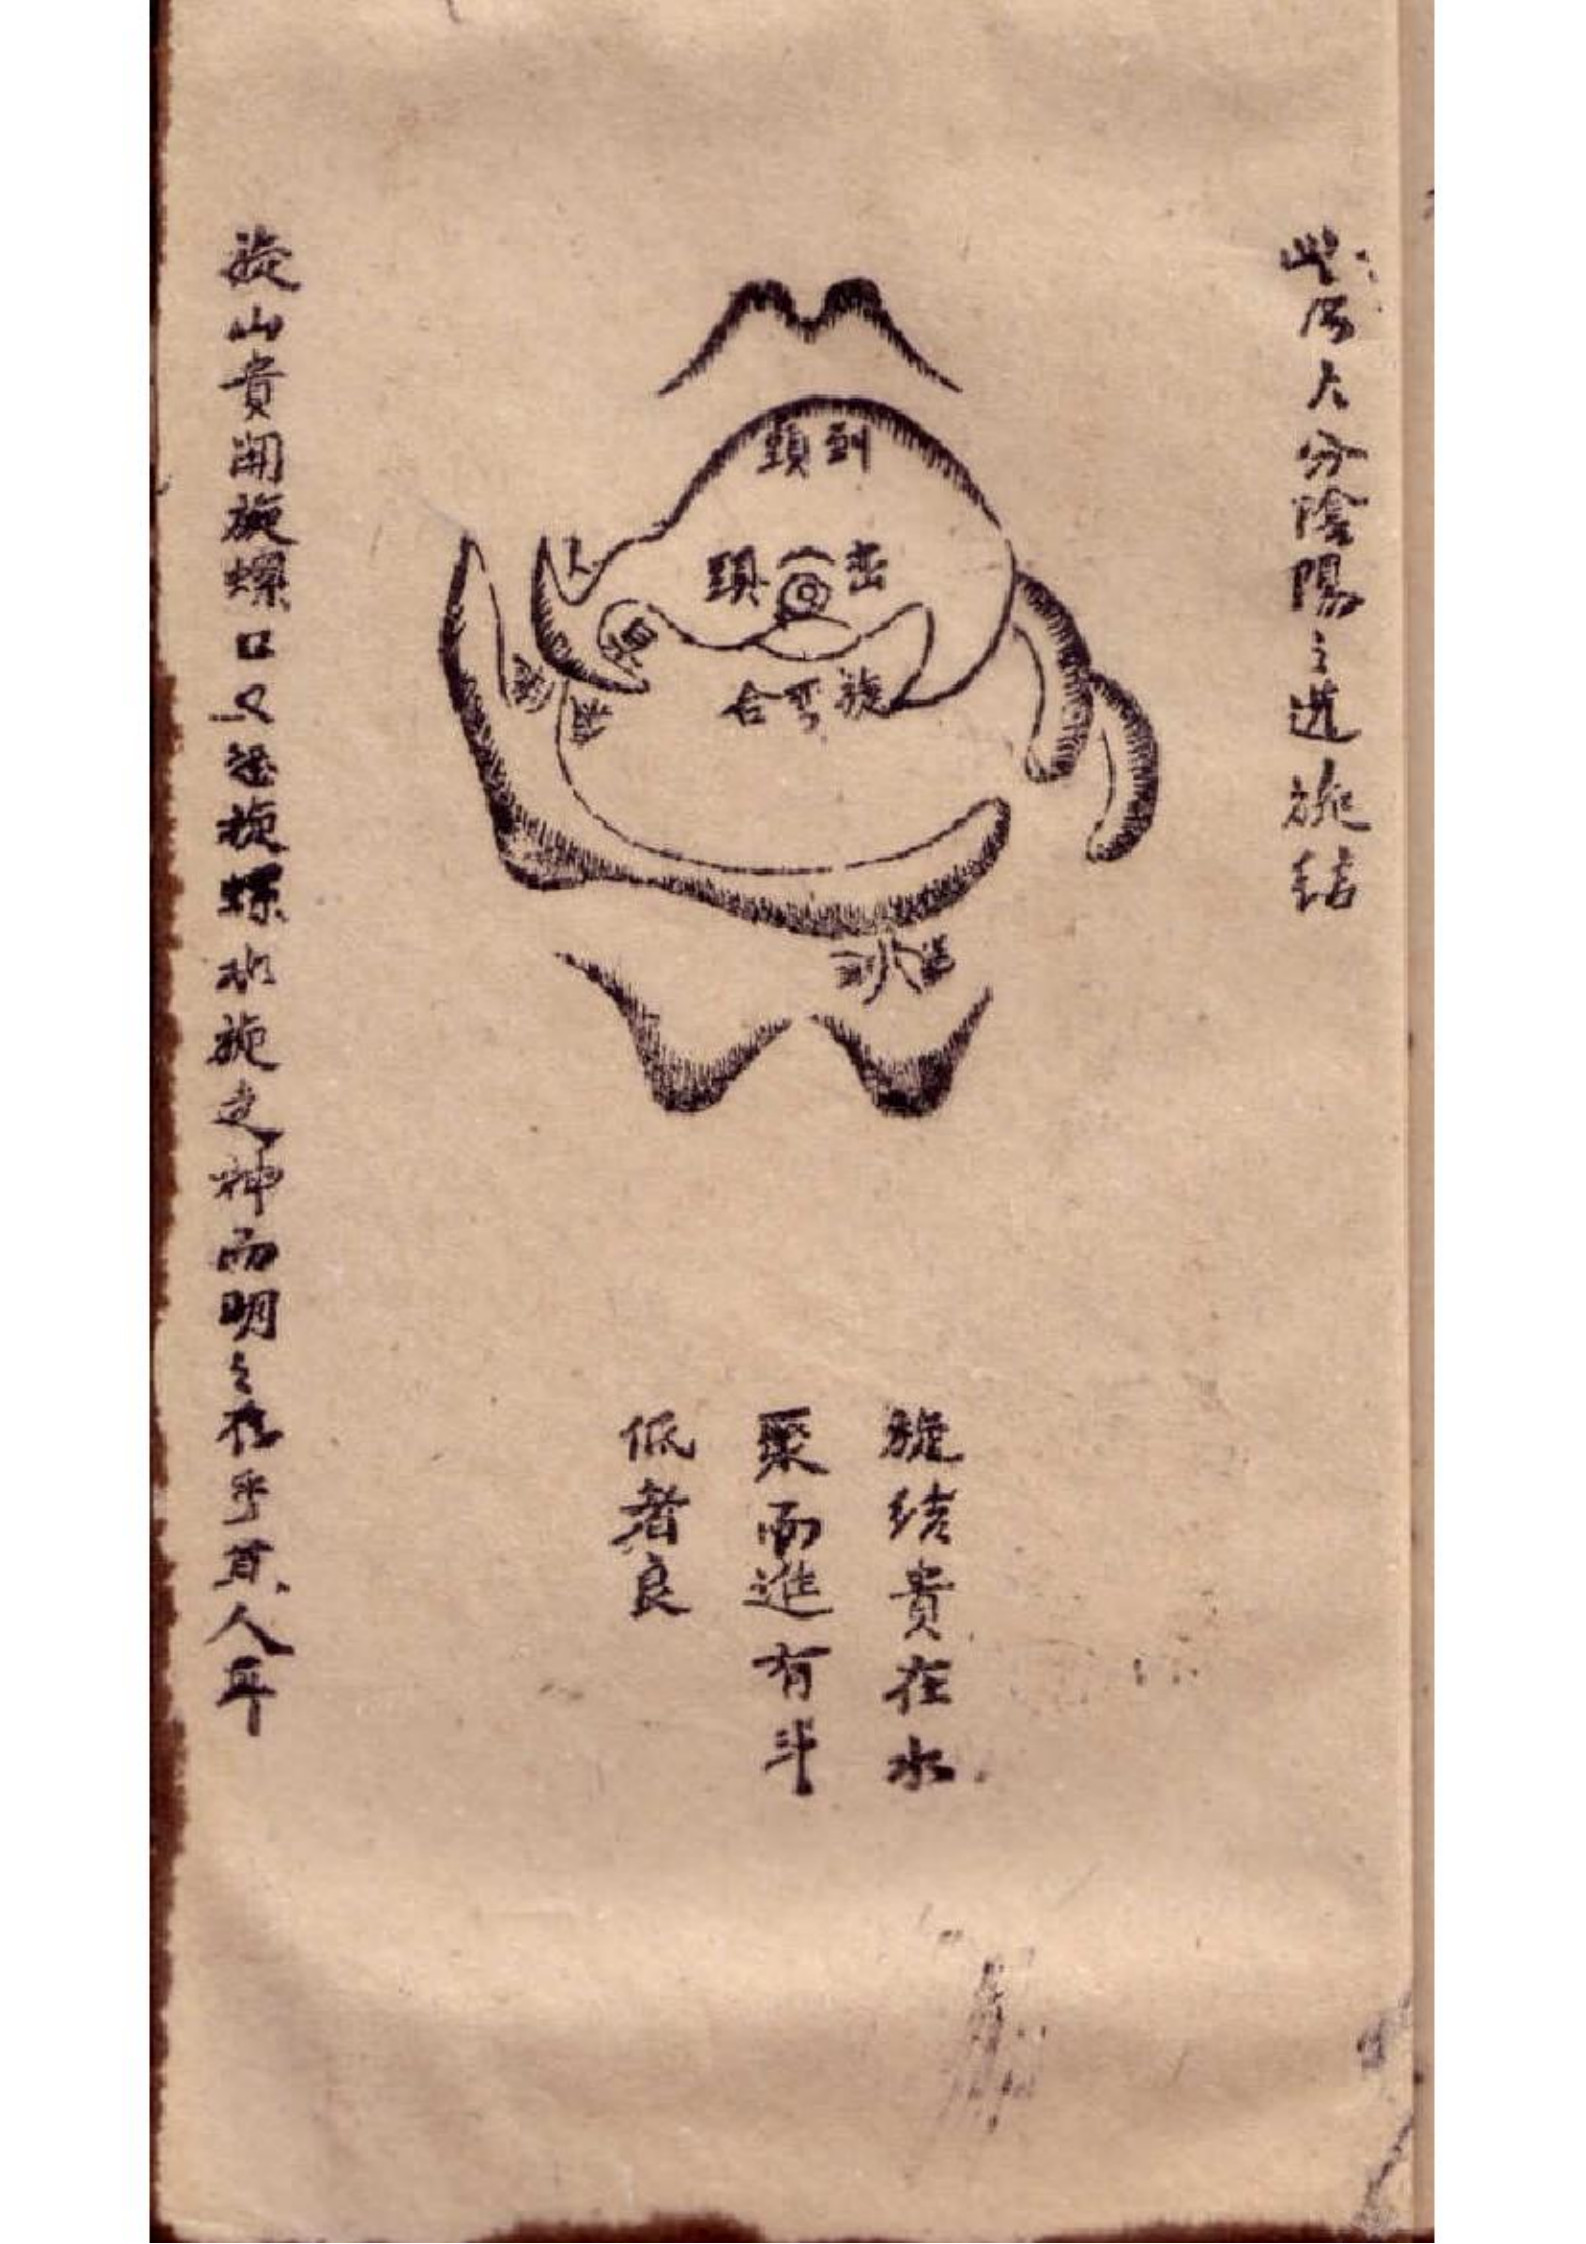 此爲大分陰陽之造旋結
到頭
巒頭
旋彎台
旋結貴在水
聚而進有斗
低者良
旋山貴開旋螺口又登旋螺水旋之神而明之存乎其人耳